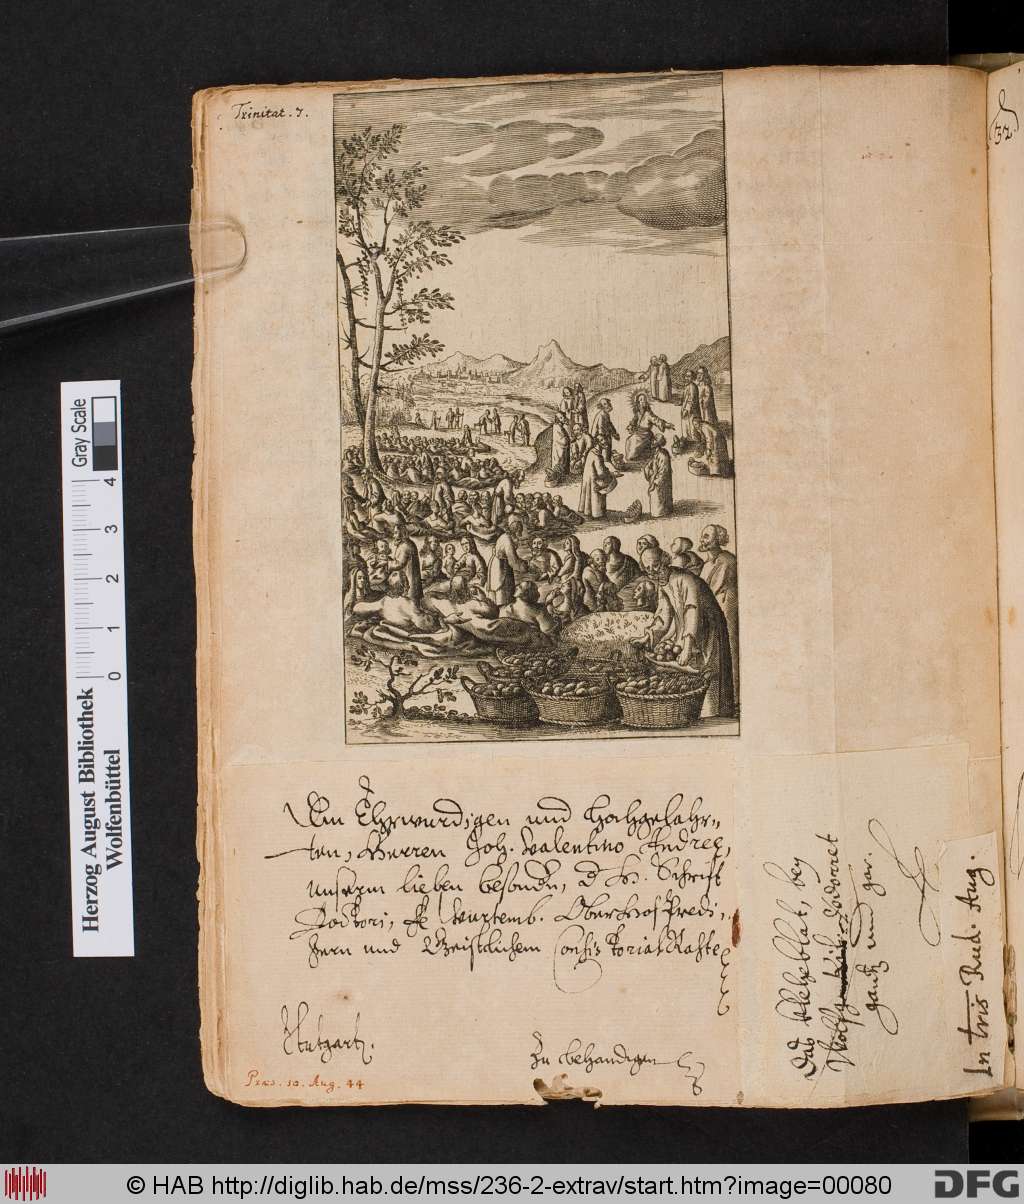 Trinitat. 7.
32
Dem Ehrwürdigen und Hochgelahr-
ten, Herren Joh. Valentino Andreæ,
unserm lieben besondern, d. H. Schrifft
Doctori, Wurtemb. Oberhofpredi-
gern und Geistlichem Consistorial Rahte
Stutgart.
Zu behandigen
Præs. 10. Aug. 44
Das bey
gantz und gar.
Rud. Aug.
Gray Scale
0 1 2 3 4
Herzog August Bibliothek
Wolfenbüttel
© HAB http://diglib.hab.de/mss/236-2-extrav/start.htm?image=00080
DFG